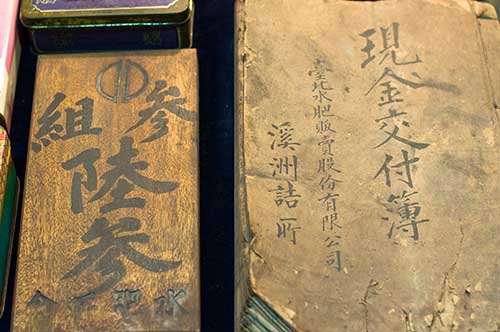 參組
陸參
水肥
現金交付簿
臺北水肥販賣股份有限公司
溪洲詰所